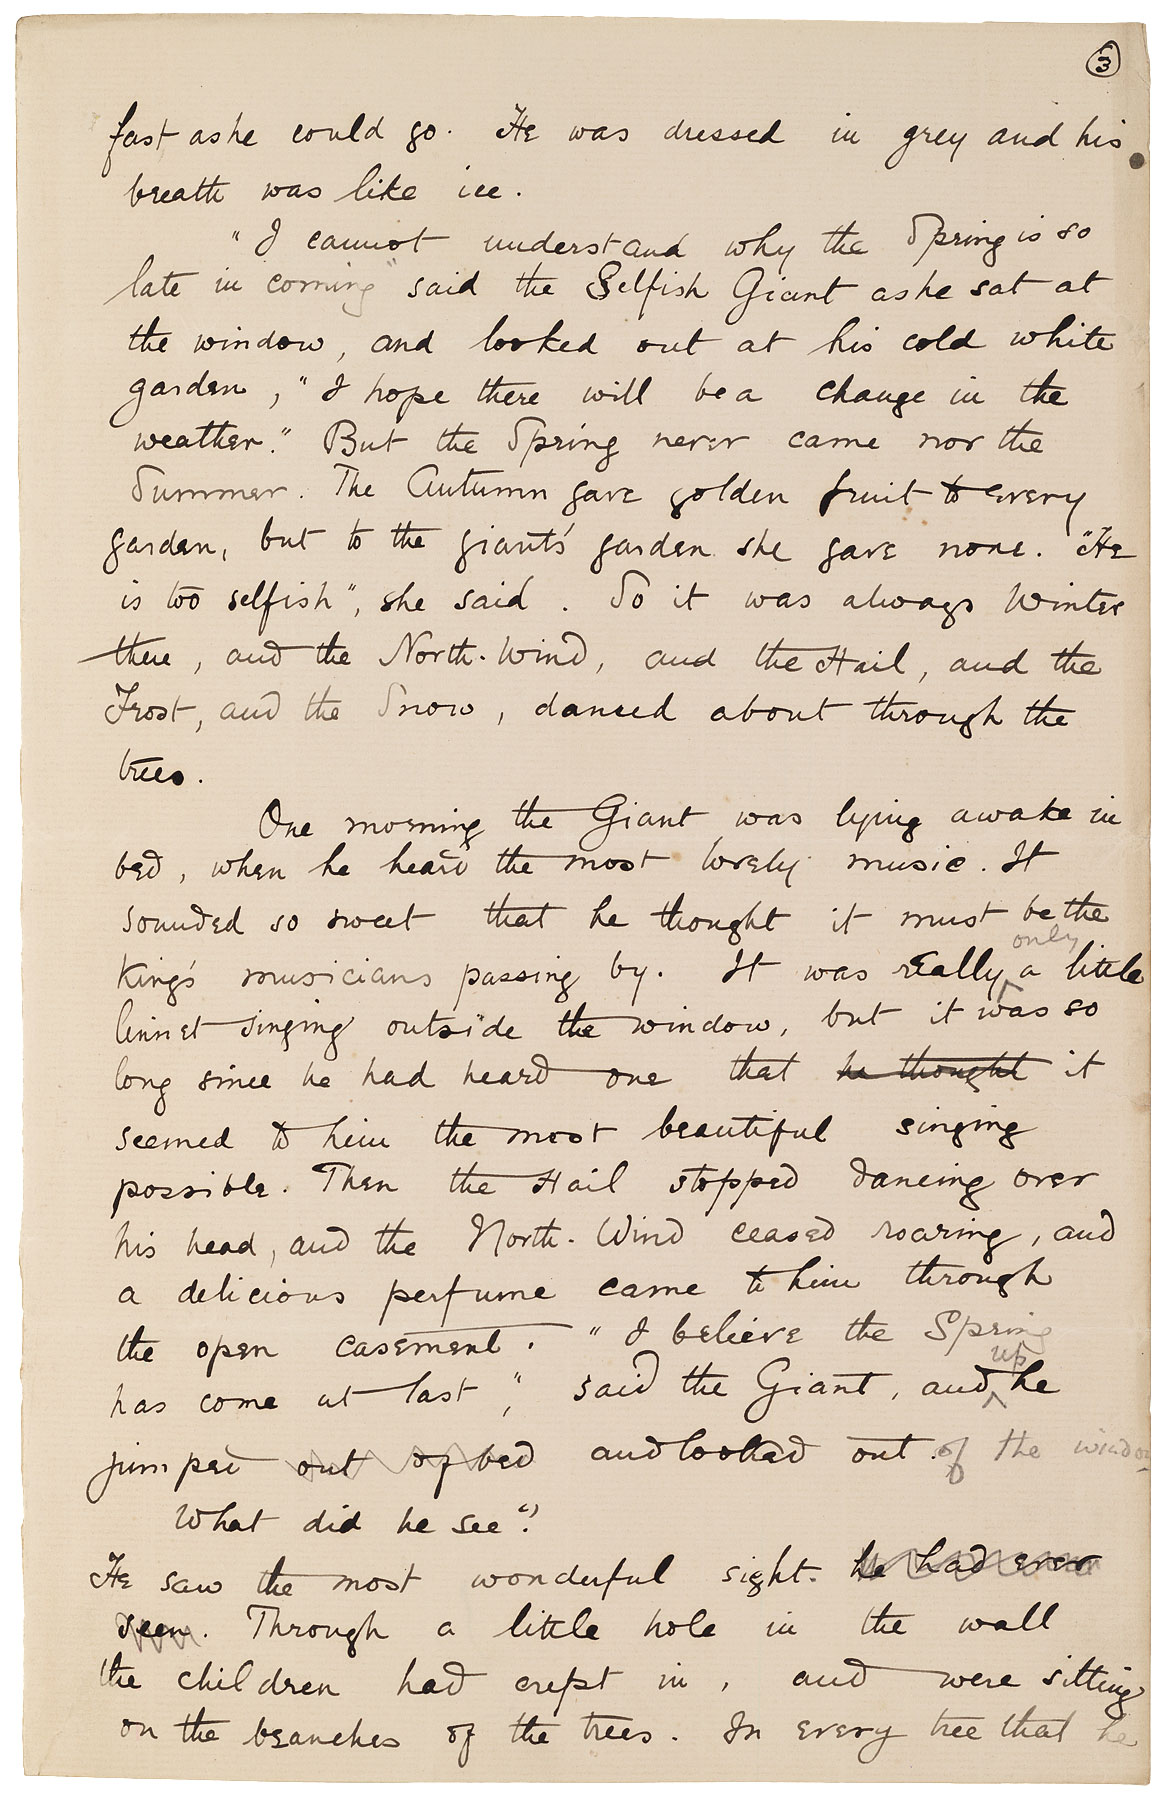 3
fast as he could go. He was dressed in grey and his
breath was like ice.
"I cannot understand why the Spring is so
late in coming" said the Selfish Giant as he sat at
the window, and looked out at his cold white
garden, "I hope there will be a change in the
weather." But the Spring never came nor the
Summer. The Autumn gave golden fruit to every
garden, but to the giant's garden she gave none. "He
is too selfish", she said. So it was always Winter
there, and the North-Wind, and the Hail, and the
Frost, and the Snow, danced about through the
trees.
One morning the Giant was lying awake in
bed, when he heard the most lovely music. It
sounded so sweet that he thought it must be the
King's musicians passing by. It was really only a little
linnet singing outside the window, but it was so
long since he had heard one that he thought it
seemed to him the most beautiful singing
possible. Then the Hail stopped dancing over
his head, and the North-Wind ceased roaring, and
a delicious perfume came to him through
the open casement. "I believe the Spring
has come at last," said the Giant, and up he
jumped out of bed and looked out. of the window
What did he see"?
He saw the most wonderful sight. he had ever
seen. Through a little hole in the wall
the children had crept in, and were sitting
on the branches of the trees. In every tree that he